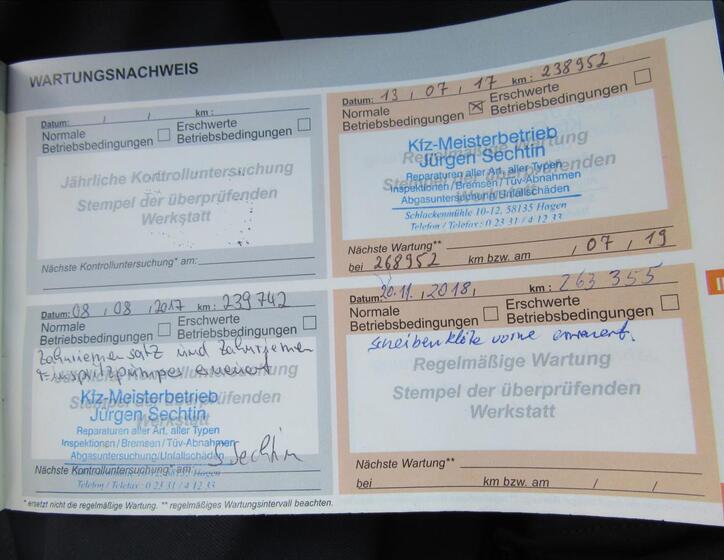 WARTUNGSNACHWEIS
Datum: / / km:
Normale Betriebsbedingungen
Erschwerte Betriebsbedingungen
Jährliche Kontrolluntersuchung
Stempel der überprüfenden
Werkstatt
Nächste Kontrolluntersuchung* am:
Datum: 13, 07, 17 km: 238952
Normale Betriebsbedingungen
Erschwerte Betriebsbedingungen
Regelmäßige Wartung
Stempel der überprüfenden
Werkstatt
Kfz-Meisterbetrieb
Jürgen Sechtin
Reparaturen aller Art, aller Typen
Inspektionen/Bremsen/Tüv-Abnahmen
Abgasuntersuchung/Unfallschäden
Schlackenmühle 10-12, 58135 Hagen
Telefon / Telefax: 0 23 31 / 4 12 33
Nächste Wartung**
bei 268952 km bzw. am , 07, 19
Datum: 08, 08, 2017 km: 239742
Normale Betriebsbedingungen
Erschwerte Betriebsbedingungen
Zahnriemensatz und Zahnriemen
Einspritzpumpe erneuert
Stempel der überprüfenden
Kfz-Meisterbetrieb
Jürgen Sechtin
Reparaturen aller Art, aller Typen
Inspektionen/Bremsen/Tüv-Abnahmen
Abgasuntersuchung/Unfallschäden
Nächste Kontrolluntersuchung* am: Hagen
Telefon / Telefax: 0 23 31 / 4 12 33
Sechtin
Datum: 20.11., 2018, km: 263 355
Normale Betriebsbedingungen
Erschwerte Betriebsbedingungen
Scheibenklötze vorne erneuert.
Regelmäßige Wartung
Stempel der überprüfenden
Werkstatt
Nächste Wartung**
bei km bzw. am / /
* ersetzt nicht die regelmäßige Wartung. ** regelmäßiges Wartungsintervall beachten.